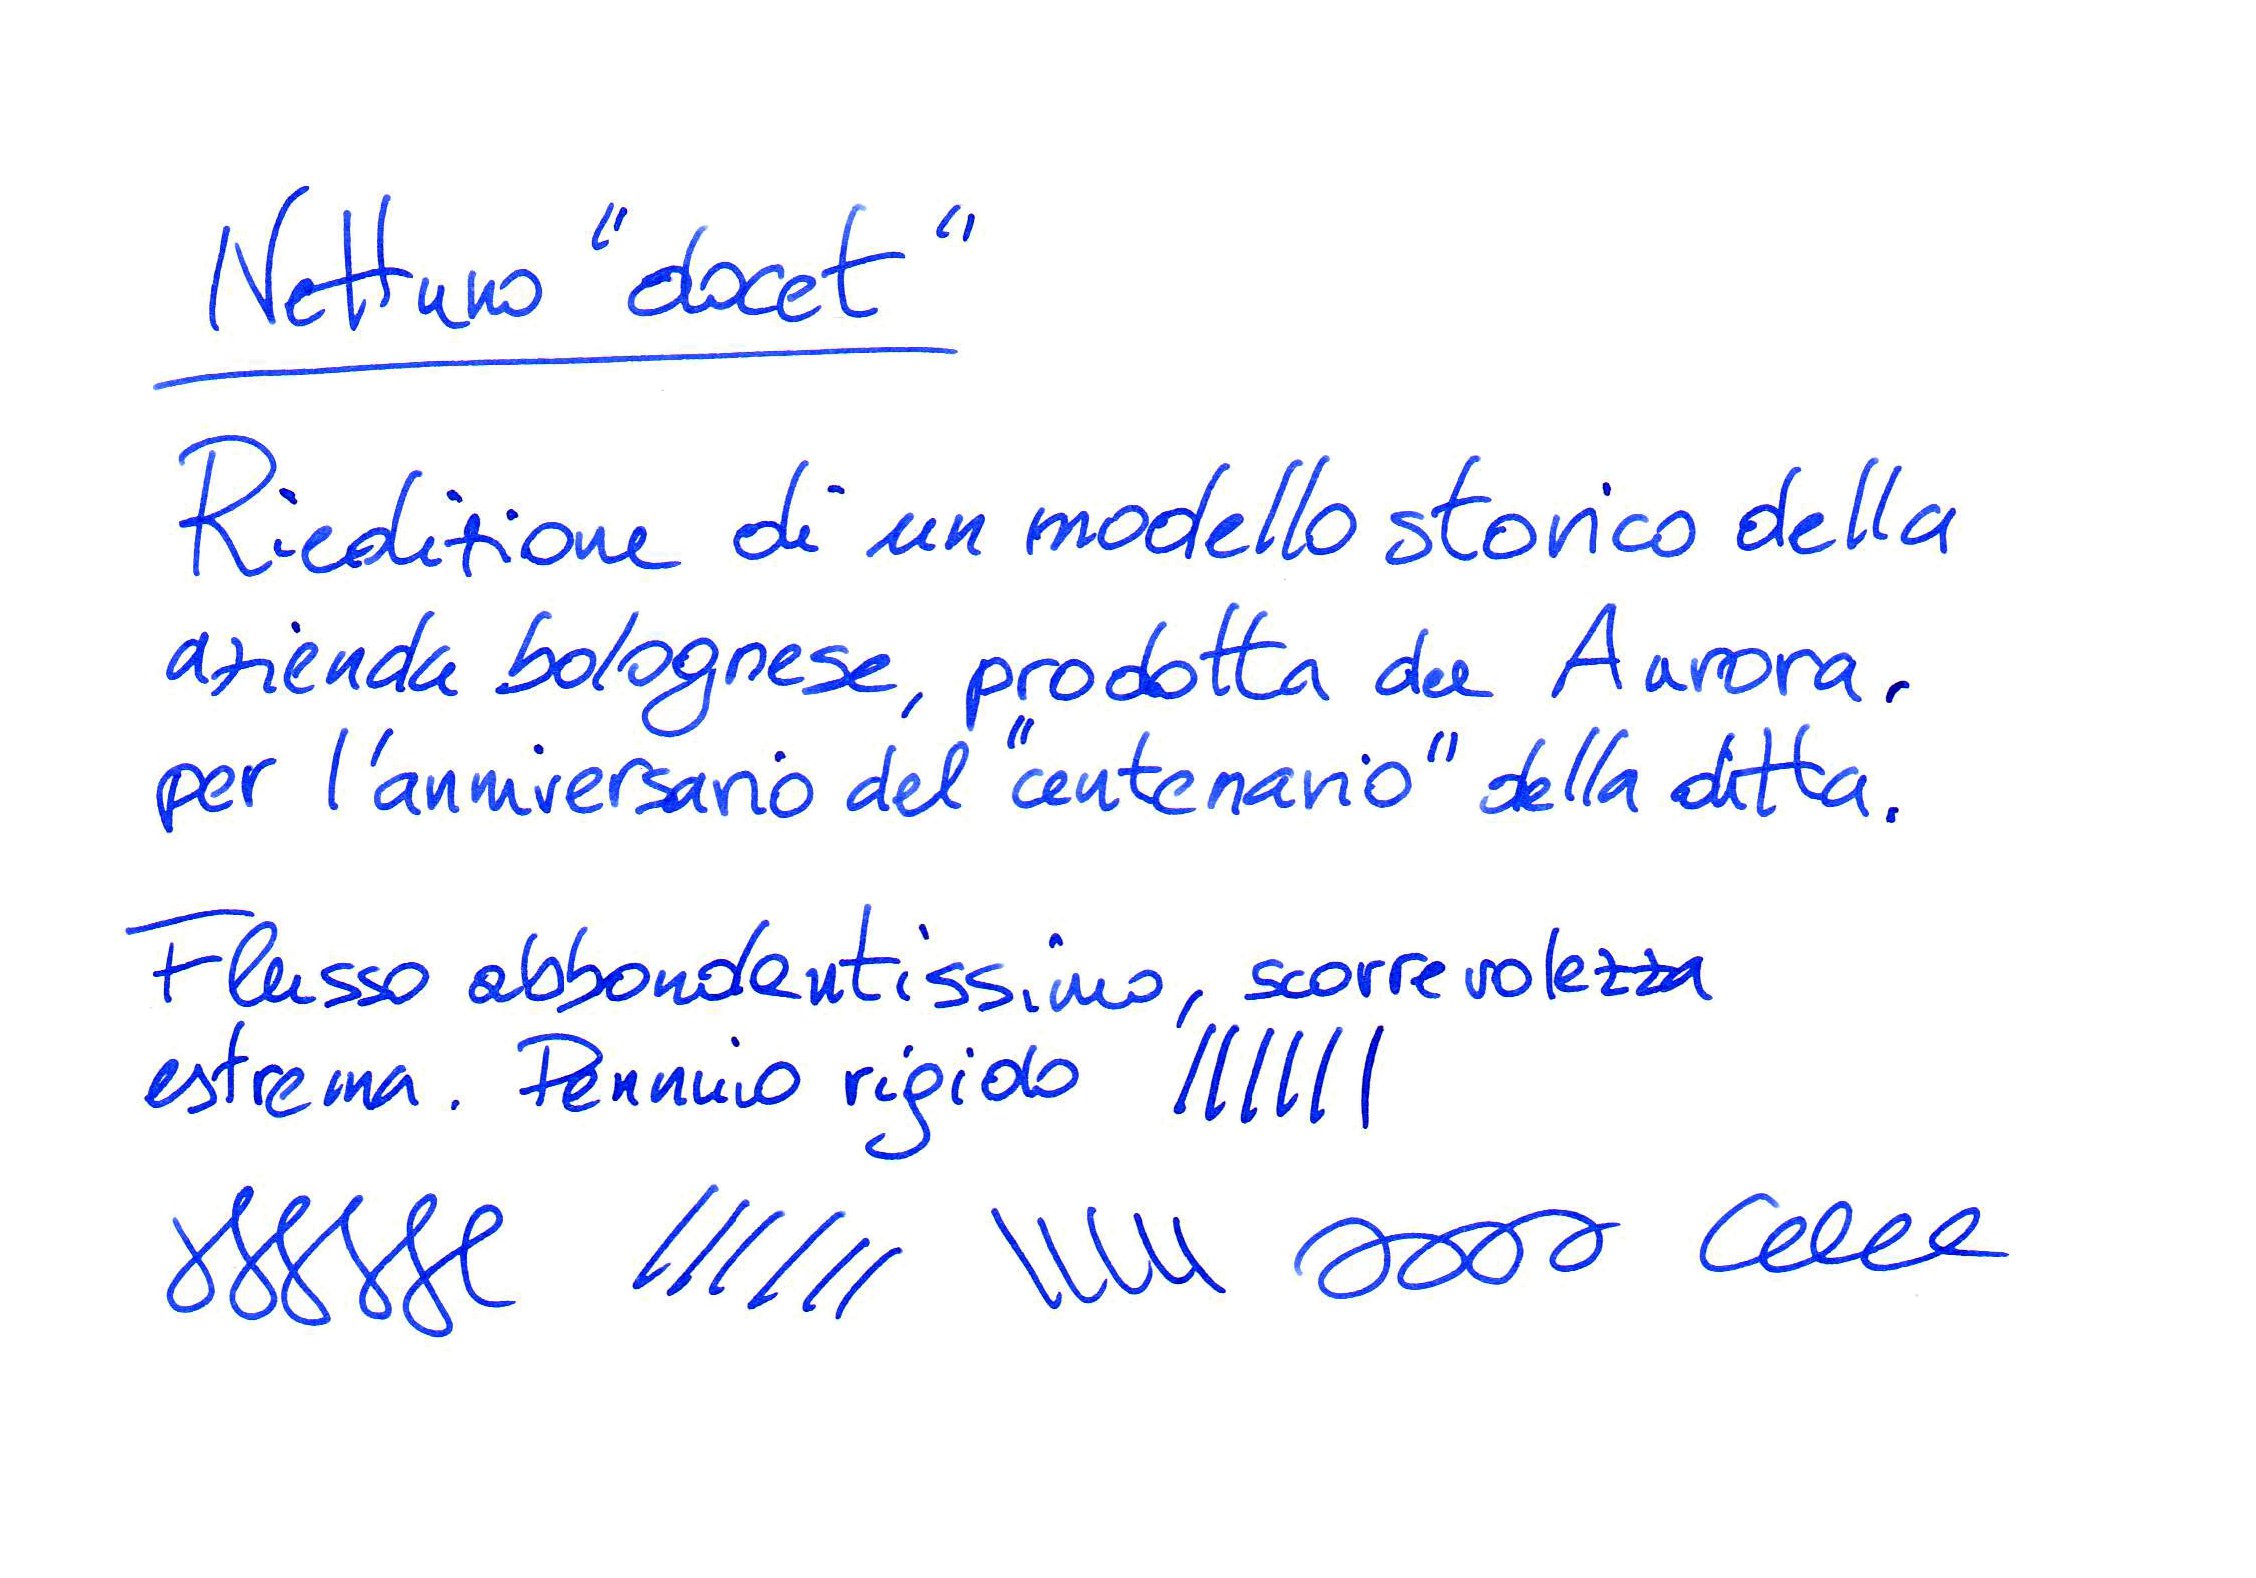 Nettuno "docet"
Riedizione di un modello storico della
azienda bolognese, prodotta da Aurora.
per l'anniversario del "centenario" della ditta.
Flusso abbondantissimo, scorrevolezza
estrema. Pennino rigido